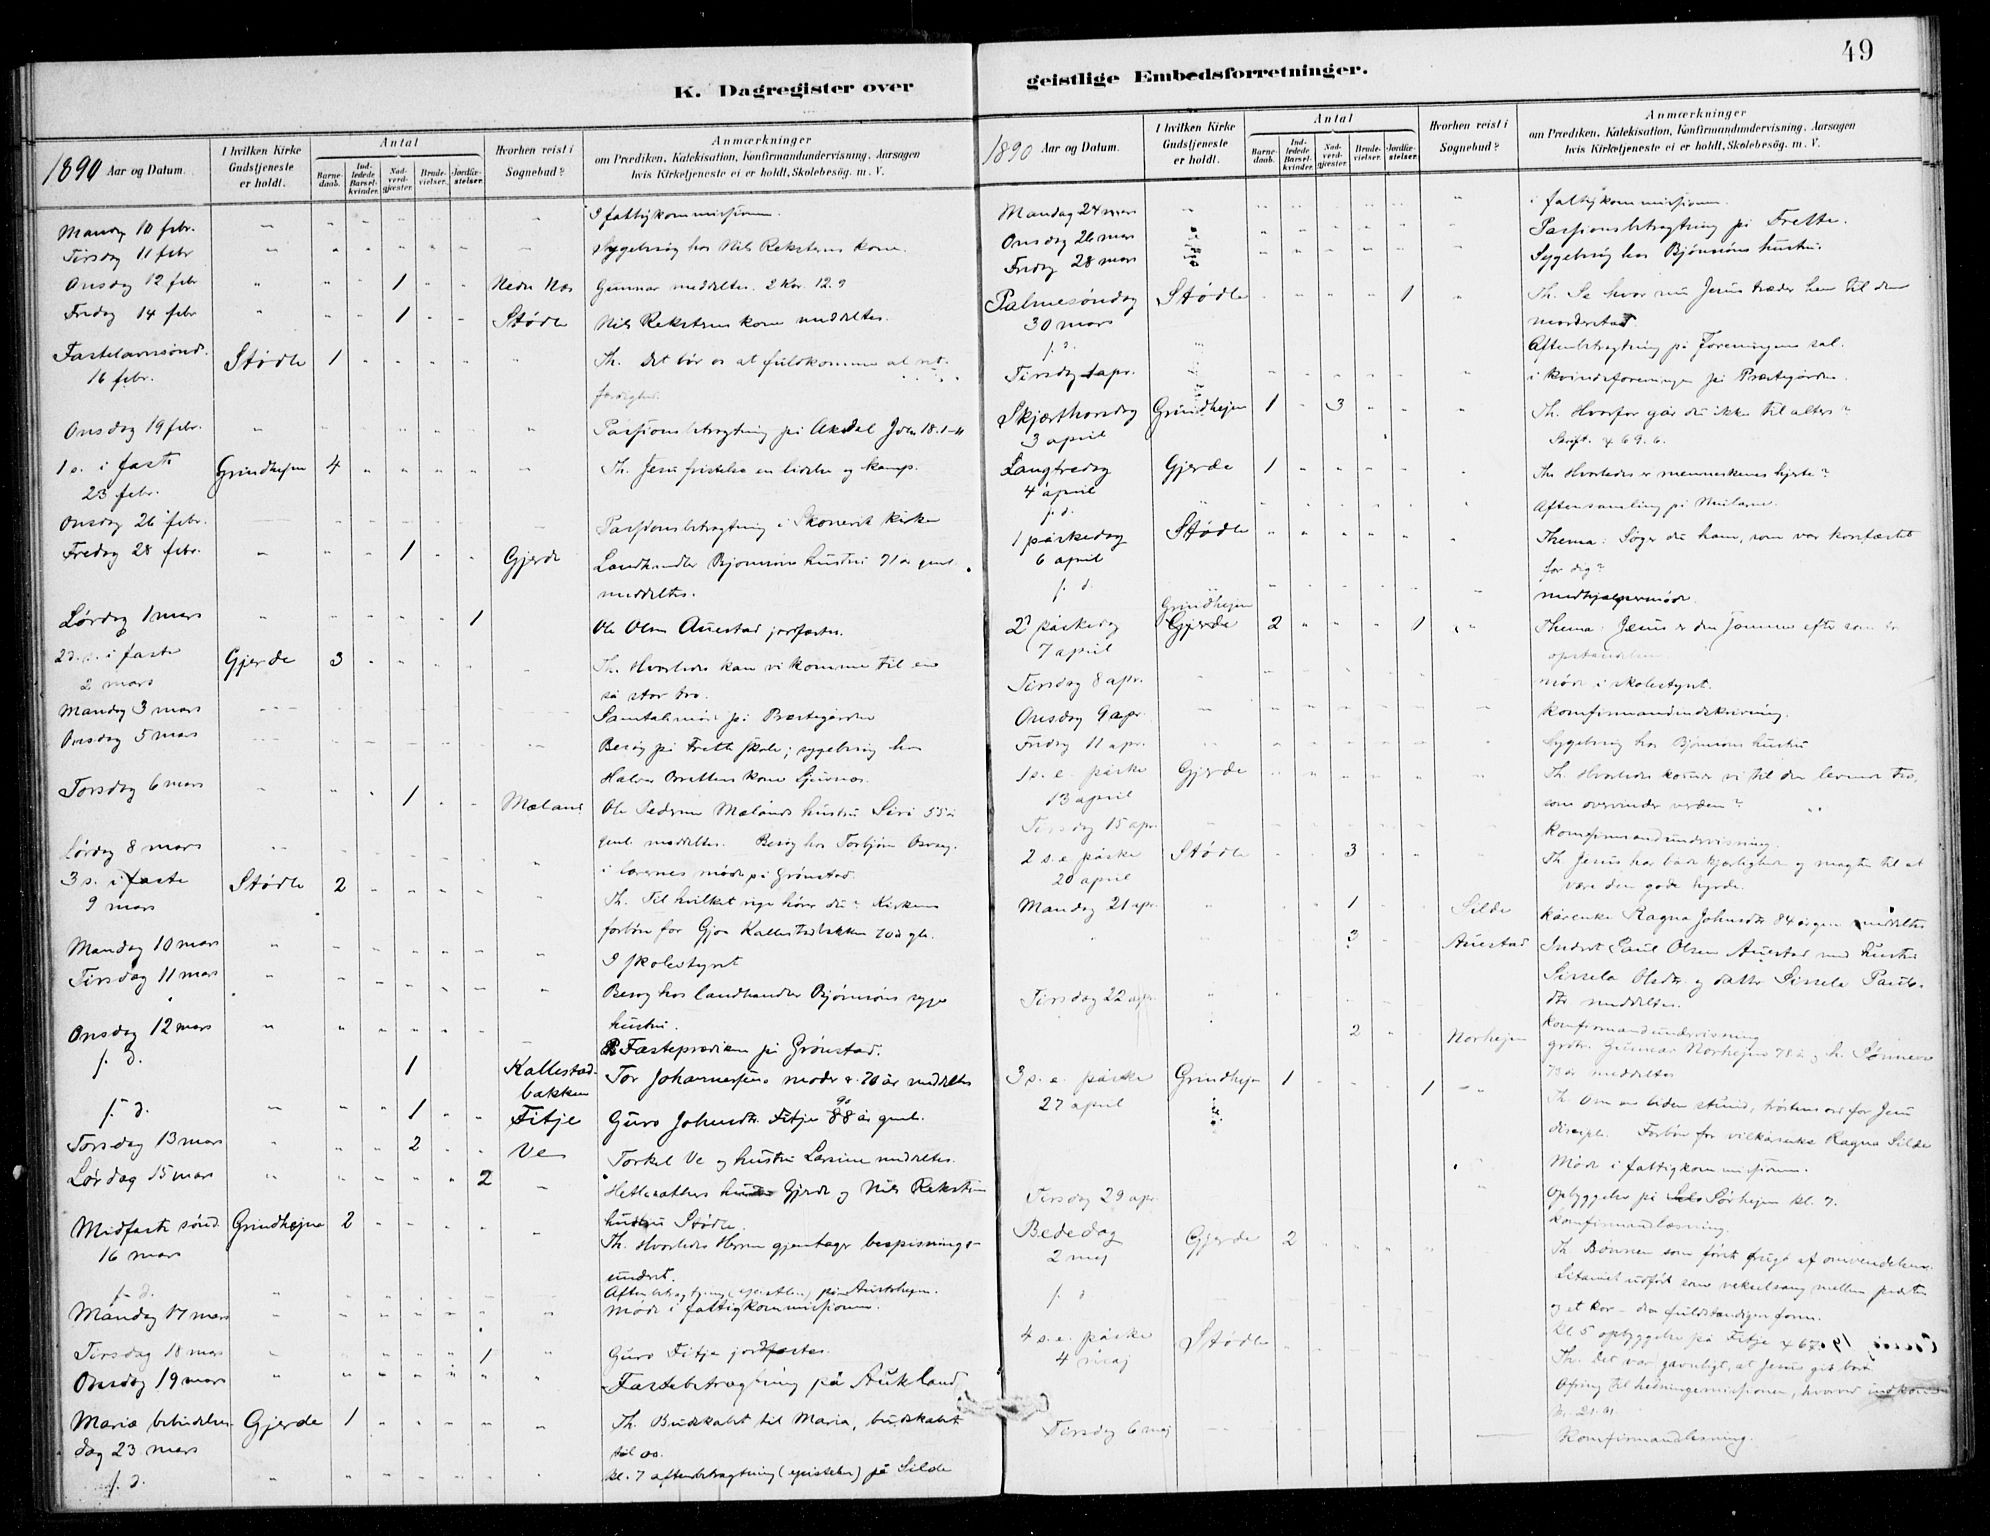 49
K. Dagregister over geistlige Embedsforretninger.
1890 Aar og Datum.
I hvilken Kirke Gudstjeneste er holdt.
Antal
Barnedaab.
Indledede Barselkvinder.
Nadverdgjester.
Brudevielser.
Jordfæstelser.
Hvorhen reist i Sognebud?
Anmærkninger
om Prædiken, Katekisation, Konfirmandundervisning, Aarsagen
hvis Kirketjeneste ei er holdt, Skolebesøg. m. V.
Mandag 10 febr. I fattigkommissionen.
Tirsdag 11 febr Sygebesøg hos Nils Rekstens kone.
Onsdag 12 febr 1 Nedre Næs Gunnar meddeltes. 2 Kor. 12.9
Fredag 14 febr 1 Stødle Nils Rekstens kone meddeltes.
Fastelavnssønd. Stødle 1 Th. Det bør os at fuldkomme al ret-
16 febr. færdighed.
Onsdag 19 febr. Passionsbetragtning på Akdal Joh. 18.1-11
1 s. i faste Grindhejm 4 Th. Jesu fristelse en lidelse og kamp.
23 febr.
Onsdag 26 febr. Passionsbetragtning i Skonevik kirke
Fredag 28 febr. 1 Gjerde Landhandler Bjørnsons hustru 71 år gml.
meddeltes.
Lørdag 1 mars 1 Ole Olsen Auestad jordfæstes.
2d. s. i faste Gjerde 3 Th. Hvorledes kan vi komme til en
2 mars så stor tro.
Mandag 3 mars Samtalemøde på Præstegården
Onsdag 5 mars Besøg på Frette skole; sygebesøg hos
Halvor kone
Torsdag 6 mars 1 Mæland Ole Pedersen Mælands hustru Siri 55 år
Lørdag 8 mars gml. meddeltes. Besøg hos Torbjørn
i lærernes møde på Grønstad.
3 s. i faste Stødle 2 Th. Til hvilket rige hører du? Kirkens
9 mars forbøn for Gjoa Kallestadbakken 70 å gl.
Mandag 10 mars I skolestyret
Tirsdag 11 mars Besøg hos landhandler Bjørnsons syge
hustru.
Onsdag 12 mars Fasteprædiken på Grønstad.
s. d. 1 Kallestadbakken Tor Johannessens moder 70 år meddeltes
s. d. 1 Fitje Guro Johnsdtr. Fitje 88 år gml.
Torsdag 13 mars 2 Ve Torkel Ve og hustru Larsine meddeltes.
Lørdag 15 mars 2 hustru Gjerde og Nils Reksten
hustru Stødle.
Midfaste sønd. Grindhejm 2 Th. Hvorledes Herren gjentager bespisnings-
16 mars undret.
s. d. Aftenbetragtning (epistlen) på Austrhejm.
Mandag 17 mars Møde i fattigkommissionen.
Tirsdag 18 mars 1 Guro Fitje jordfæstes.
Onsdag 19 mars Fastebetragtning på Aukland
Mariæ bebudelses- Gjerde 1 Th. Budskabet til Maria, budskabet
dag 23 mars til os.
s. d. kl. 7 aftenbetragtning (epistelen) på Silde
1890 Aar og Datum.
I hvilken Kirke Gudstjeneste er holdt.
Antal
Barnedaab.
Indledede Barselkvinder.
Nadverdgjester.
Brudevielser.
Jordfæstelser.
Hvorhen reist i Sognebud?
Anmærkninger
om Prædiken, Katekisation, Konfirmandundervisning, Aarsagen
hvis Kirketjeneste ei er holdt, Skolebesøg. m. V.
Mandag 24 mars i fattigkommissionen.
Onsdag 26 mars Passionsbetragtning på Frette.
Fredag 28 mars Sygebesøg hos Bjørnsons hustru
Palmesøndag Stødle 1 Th. Se hvor nu Jesus træder hen til den
30 mars morderstad
s. d. Aftenbetragtning på Foreningens sal.
Tirsdag 1 apr. i kvindeforeningen på Præstegården.
Skjærthorsdag Grindhejm 1 3 Th. Hvorfor går du ikke til alters?
3 april Skrift. 4 69. 6.
Langfredag Gjerde 1 Th. Hvorledes er menneskenes hjerte?
4 april
s. d. Aftensamling på
1 påskedag Stødle Thema: Søger du ham, som var korsfæstet
6 april for dig?
s. d. medhjælpermøde.
2n påskedag Grindhejm Gjerde 2 1 Thema. Jesus er den samme efter som før
7 april opstandelsen.
Tirsdag 8 apr. Møde i skolestyret.
Onsdag 9 apr. Konfirmandindskrivning.
Fredag 11 apr. Sygebesøg hos Bjørnsons hustru
1 s. e. påske Gjerde Th. Hvorledes kommer vi til den levende tro,
13 april som overvinder verden?
Tirsdag 15 apr. Konfirmandundervisning.
2 s. e. påske Stødle 3 Th. Jesus har både kjærlighed og magten til at
20 april være den gode hyrde.
Mandag 21 apr. 1 Silde Ragna Johnsdtr 84 år gm meddeltes
3 Auestad Inderst Paul Olsen Auestad med hustru
Sissela Olsdtr og datter Sissela Pauls-
dtr meddeltes.
Tirsdag 22 apr. Konfirmandundervisning
2 Norhejm Gunnar Norhejm 78 å og h.
73 år meddeltes
3 s. e. påske Grindhejm 1 1 Th. Om en liden stund, trøstens ord for Jesu
27 april disciple. Forbøn for Ragna Silde
Møde i fattigkommissionen.
opbyggelse på Sørhejm kl. 7.
Tirsdag 29 apr. Konfirmandlæsning.
Bededag Gjerde 2 Th. Bønnen som først frugt af omvendelsen.
2 maj Litaniet udført som vekselsang mellem præsten
og et kor - den fuldstændigen form.
s. d. kl. 5 opbyggelse på Fitje
4 s. e. påske Stødle Th. Det var gavnligt, at Jesus gik bort
4 maj Ofring til hedningemissionen, hvorved indkom
Kr. 21.
Tirsdag 6 maj Konfirmandlæsning.